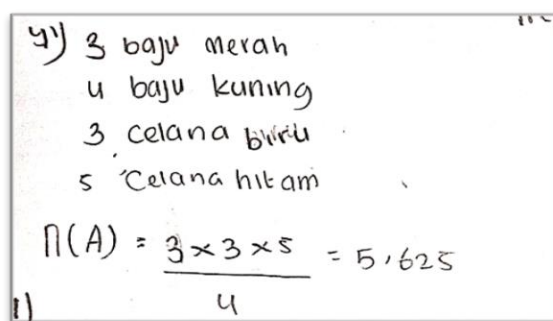 4) 3 baju merah
4 baju kuning
3 celana biru
5 Celana hitam
n(A) = 3 × 3 × 5 / 4 = 5,625